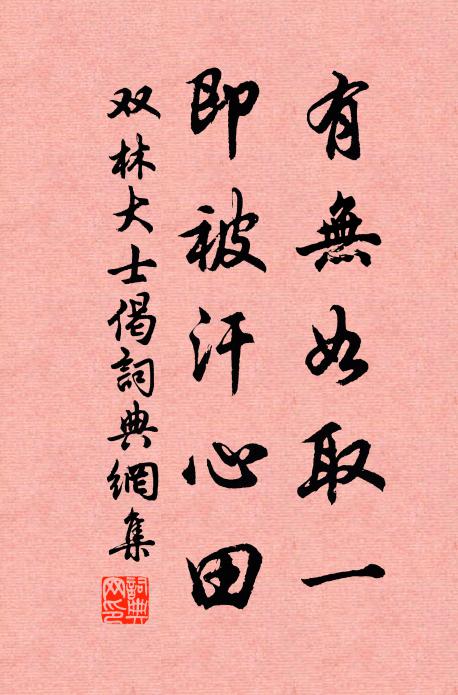 有無如取一
即被汗心田
双林大士偈詞典網集
詞典網印